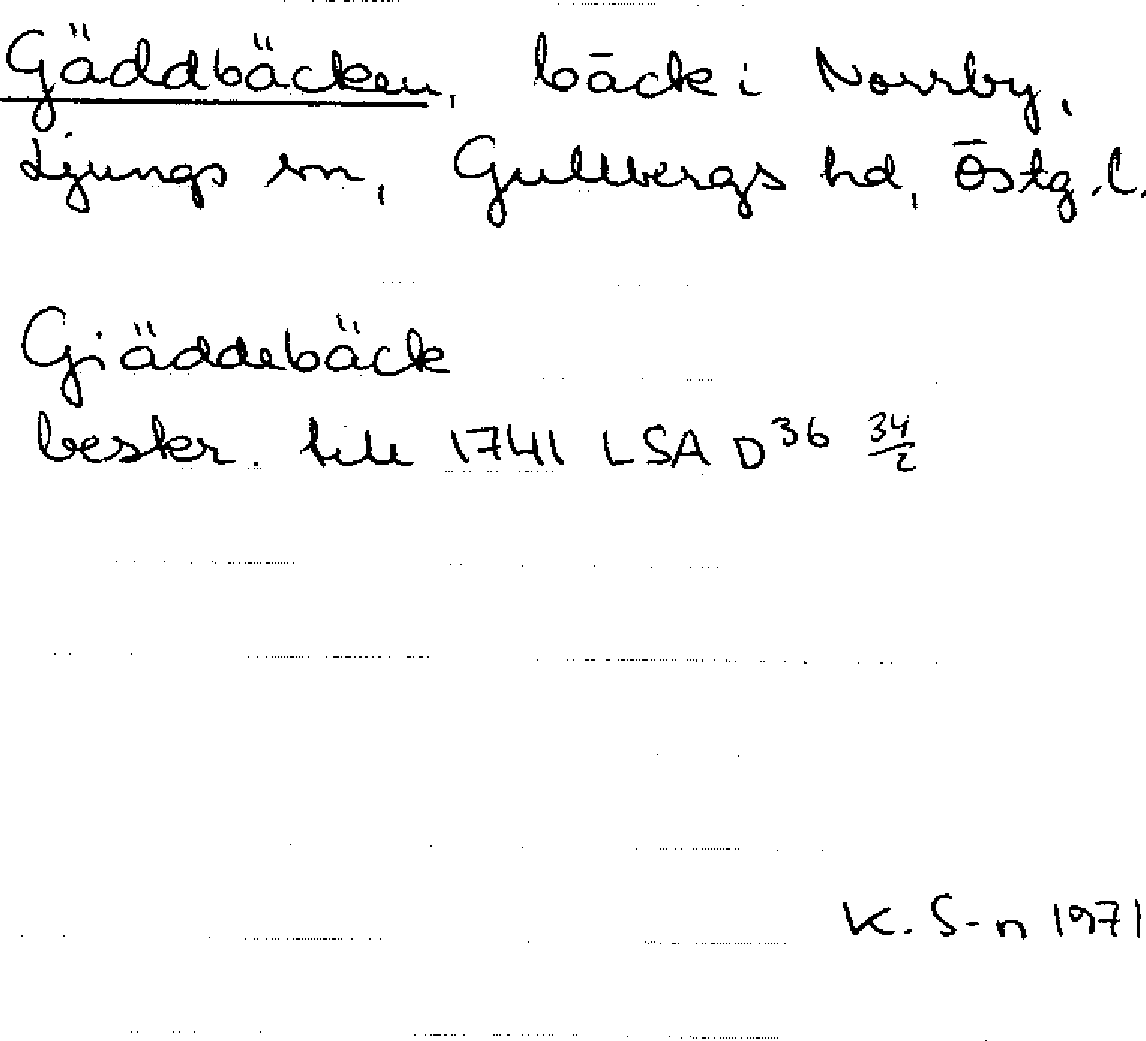 Gäddbäcken, bäck i Norrby,
Ljungs sn, Gullbergs hd, Östg.l.
Giäddebäck
beskr. till 1741 LSA D36 34/2
K. S-n 1971